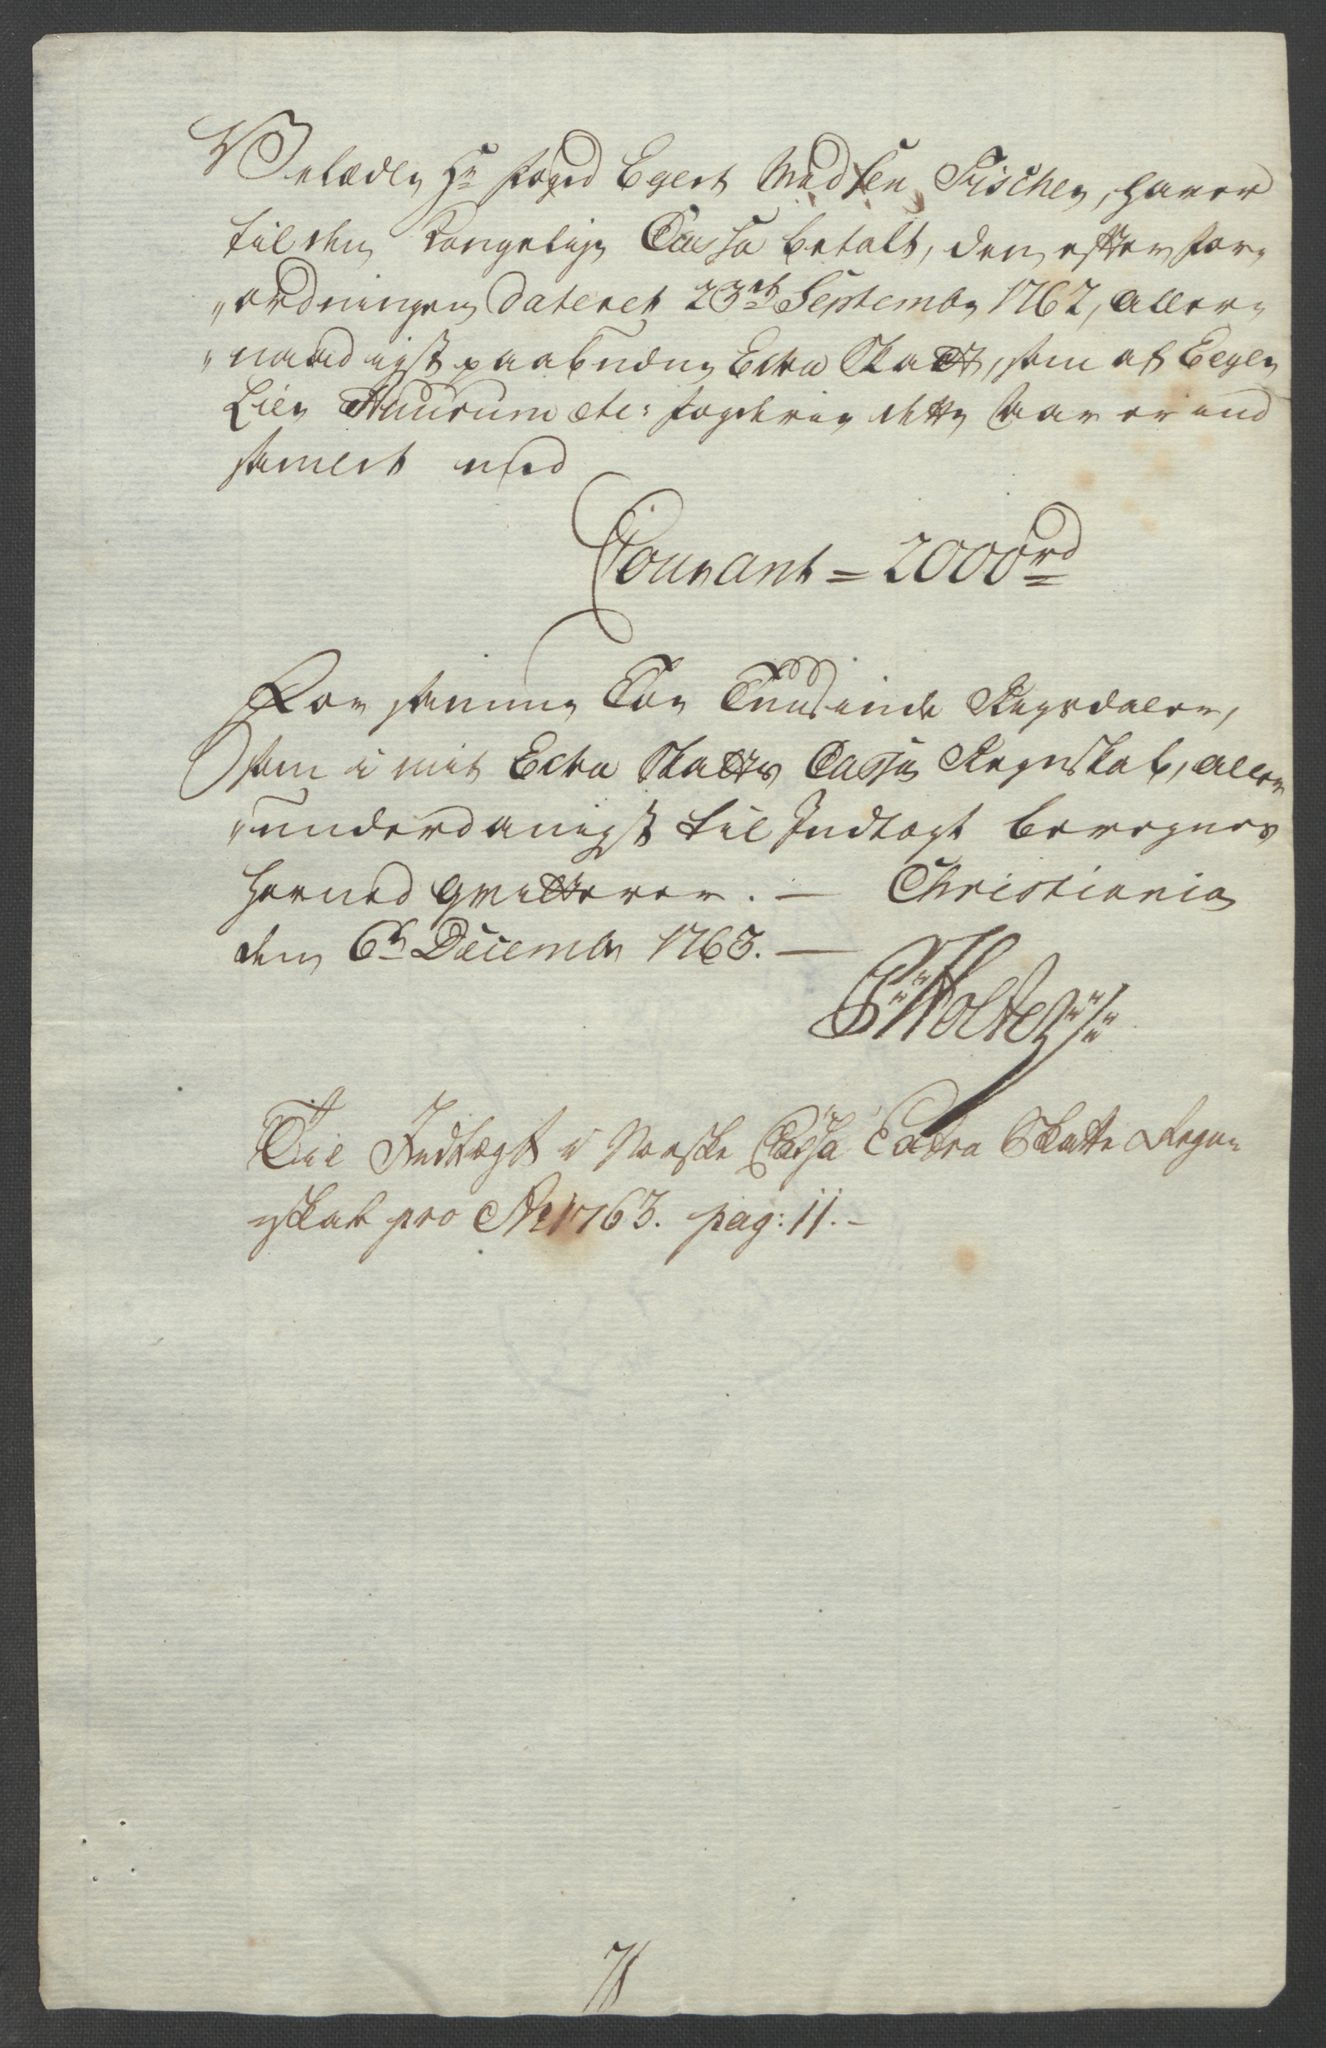 Velædle Hr Foged Egert Madsen Fischer, haver
til den Kongelige Cassa betalt, den efter for„
„ordningen dateret 23de Septembr 1762, aller„
„naadigst paabudne Extra Skatt, som af
Lier fogderie dette Aar er ind„
samlet med
Courant = 2000 rd
For samme Toe Tuusinde Rigsdaler,
som i mit Extra Skatts Cassa Regnskab, aller„
„underdanigst til Indtægt beregnes
hermed qvitterer. — Christiania
den 6te Decembr 1763. —
Holter
Til Indtægt i Norske Cassa Extra Skatte Regn„
„skab pro Ao 1763. pag: 11. –